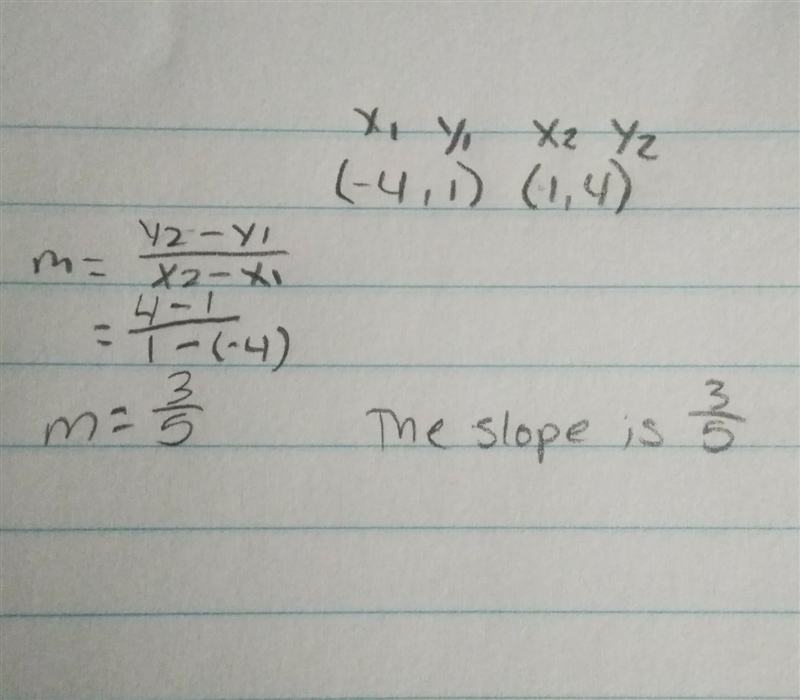 x₁ y₁ x₂ y₂
(-4,1) (1,4)
m = y₂ - y₁ / x₂ - x₁
= 4 - 1 / 1 - (-4)
m = 3/5 The slope is 3/5